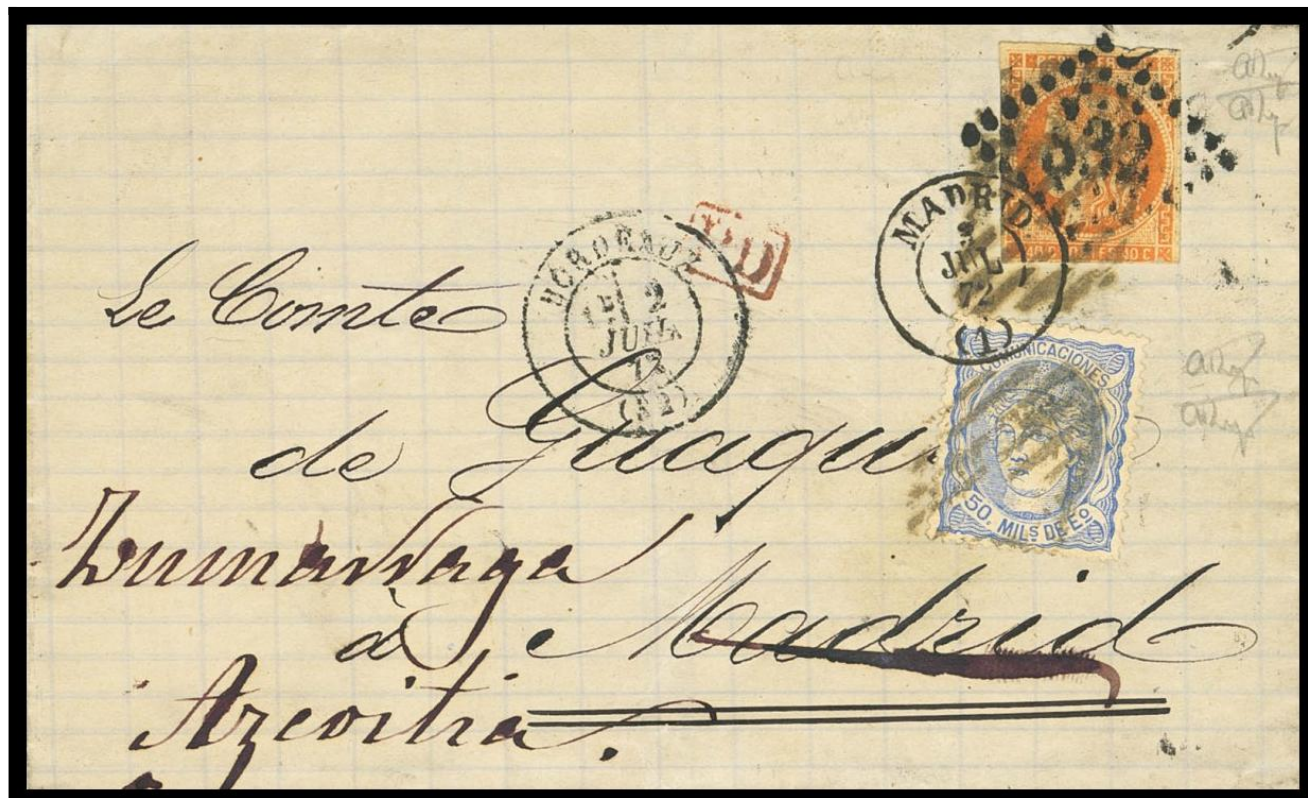 532
MADRID
JUL
72
(1)
PD
BORDEAUX
2
JUIL
72
(32)
COMUNICACIONES
50. MILS DE Eº
Le Comte
de Guaqui
Zumarraga
à Madrid
Azcoitia.